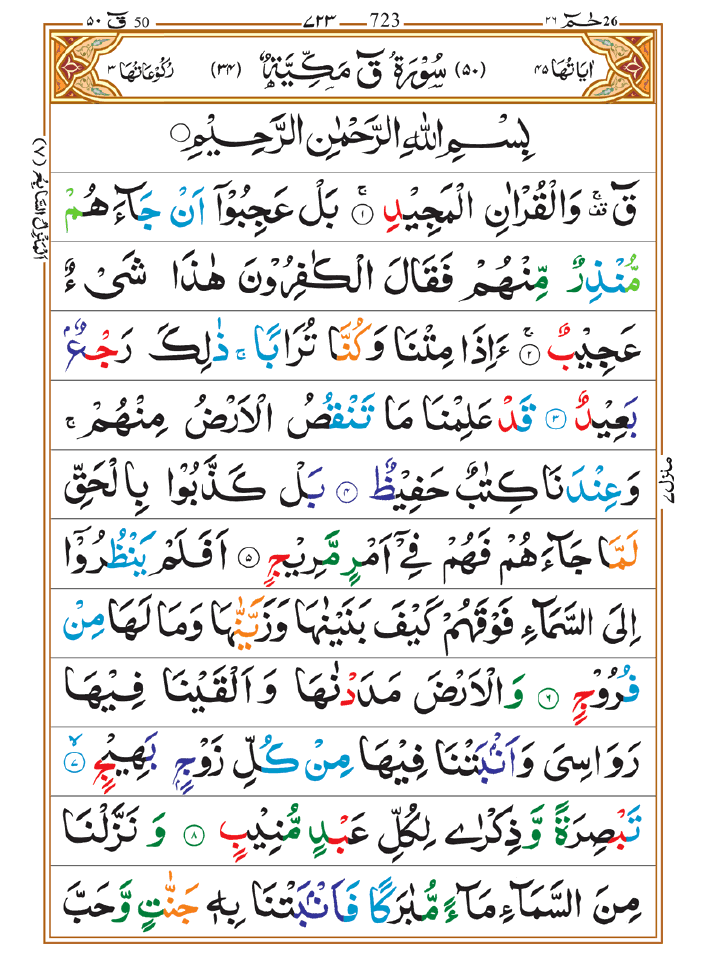 قٓ ٥٠ 50 ٧٢٣ 723 حٰمٓ ٢٦ 26
اٰیَاتُهَا ٤٥ (٥٠) سُوْرَةُ قٓ مَكِّیَّةٌ (٣٤) رُكُوْعَاتُهَا ٣
بِسْمِ اللّٰهِ الرَّحْمٰنِ الرَّحِیْمِ
قٓ ۚ۫ وَالْقُرْاٰنِ الْمَجِیْدِ ۚ‏﴿١﴾ بَلْ عَجِبُوْۤا اَنْ جَآءَهُمْ
مُّنْذِرٌ مِّنْهُمْ فَقَالَ الْكٰفِرُوْنَ هٰذَا شَیْءٌ
عَجِیْبٌ ۚ‏﴿٢﴾ ءَاِذَا مِتْنَا وَكُنَّا تُرَابًا ۚ ذٰلِكَ رَجْعٌۢ
بَعِیْدٌ ﴿٣﴾ قَدْ عَلِمْنَا مَا تَنْقُصُ الْاَرْضُ مِنْهُمْ ۚ
وَعِنْدَنَا كِتٰبٌ حَفِیْظٌ ﴿٤﴾ بَلْ كَذَّبُوْا بِالْحَقِّ
لَمَّا جَآءَهُمْ فَهُمْ فِیْۤ اَمْرٍ مَّرِیْجٍ ﴿٥﴾ اَفَلَمْ یَنْظُرُوْۤا
اِلَی السَّمَآءِ فَوْقَهُمْ كَیْفَ بَنَیْنٰهَا وَزَیَّنّٰهَا وَمَا لَهَا مِنْ
فُرُوْجٍ ﴿٦﴾ وَالْاَرْضَ مَدَدْنٰهَا وَاَلْقَیْنَا فِیْهَا
رَوَاسِیَ وَاَنْۢبَتْنَا فِیْهَا مِنْ كُلِّ زَوْجٍۭ بَهِیْجٍ ﴿٧﴾
تَبْصِرَةً وَّذِكْرٰی لِكُلِّ عَبْدٍ مُّنِیْبٍ ﴿٨﴾ وَنَزَّلْنَا
مِنَ السَّمَآءِ مَآءً مُّبٰرَكًا فَاَنْۢبَتْنَا بِهٖ جَنّٰتٍ وَّحَبَّ
اَلْمَنْزِلُ السَّابِعُ (٧)
منزل ٧